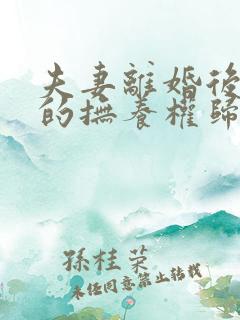 夫妻離婚後
的撫養權歸
孫桂榮
未任同意禁止轉載